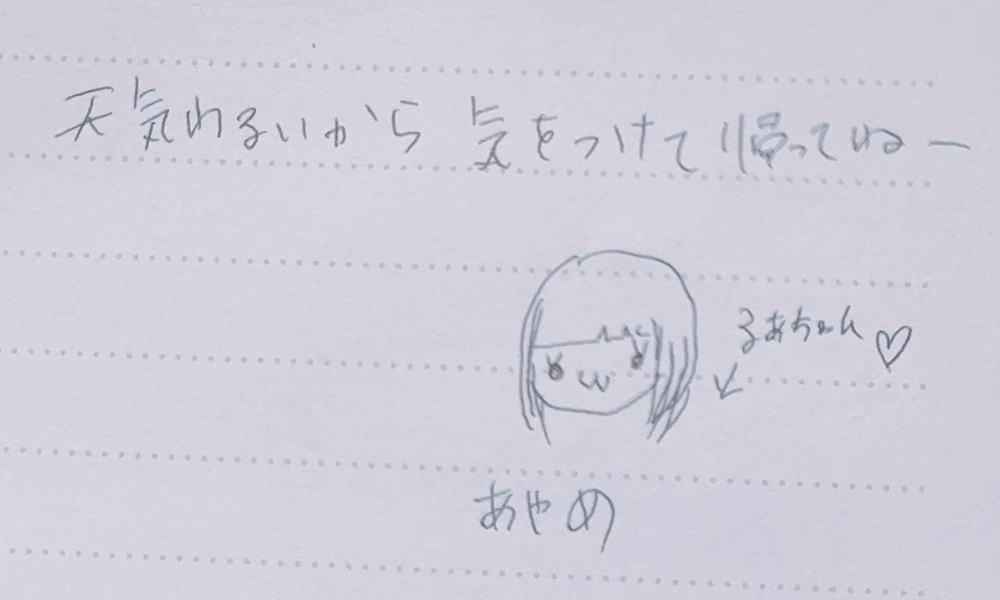 天気わるいから 気をつけて帰ってねー
るあちゃん♡
あやめ